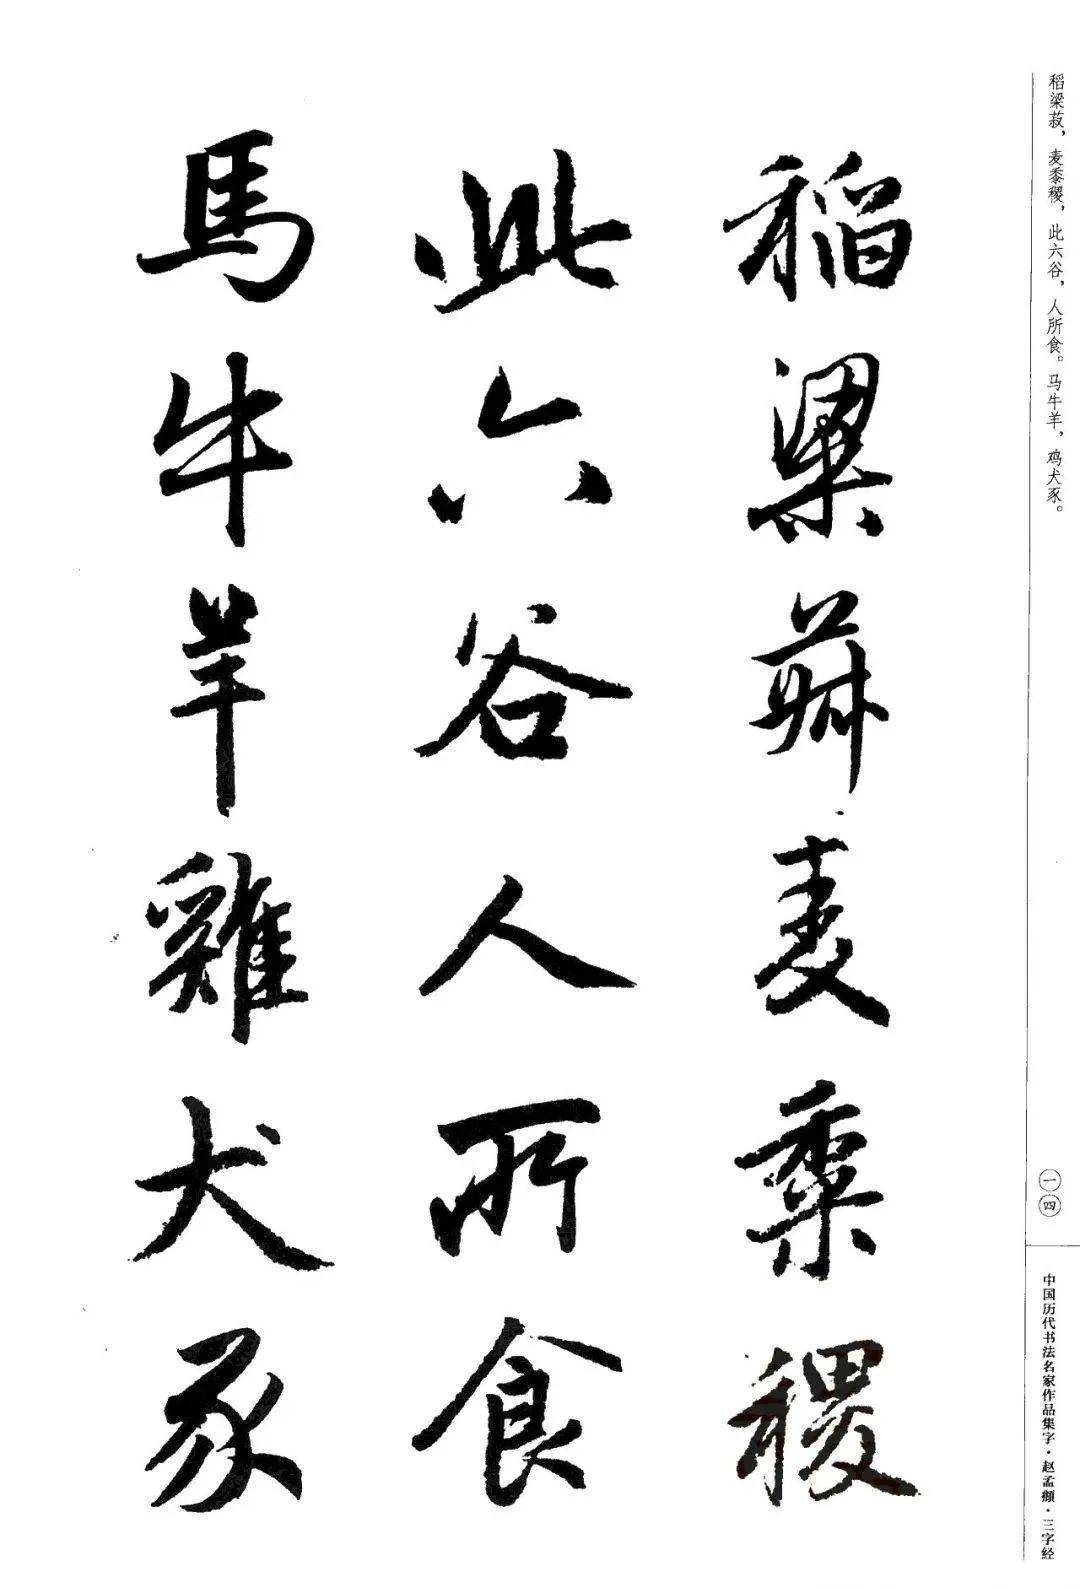 稻粱菽，麦黍稷，此六谷，人所食。马牛羊，鸡犬豕。
稻粱菽麦黍稷
此六谷人所食
馬牛羊雞犬豕
一四
中国历代书法名家作品集字·赵孟頫·三字经